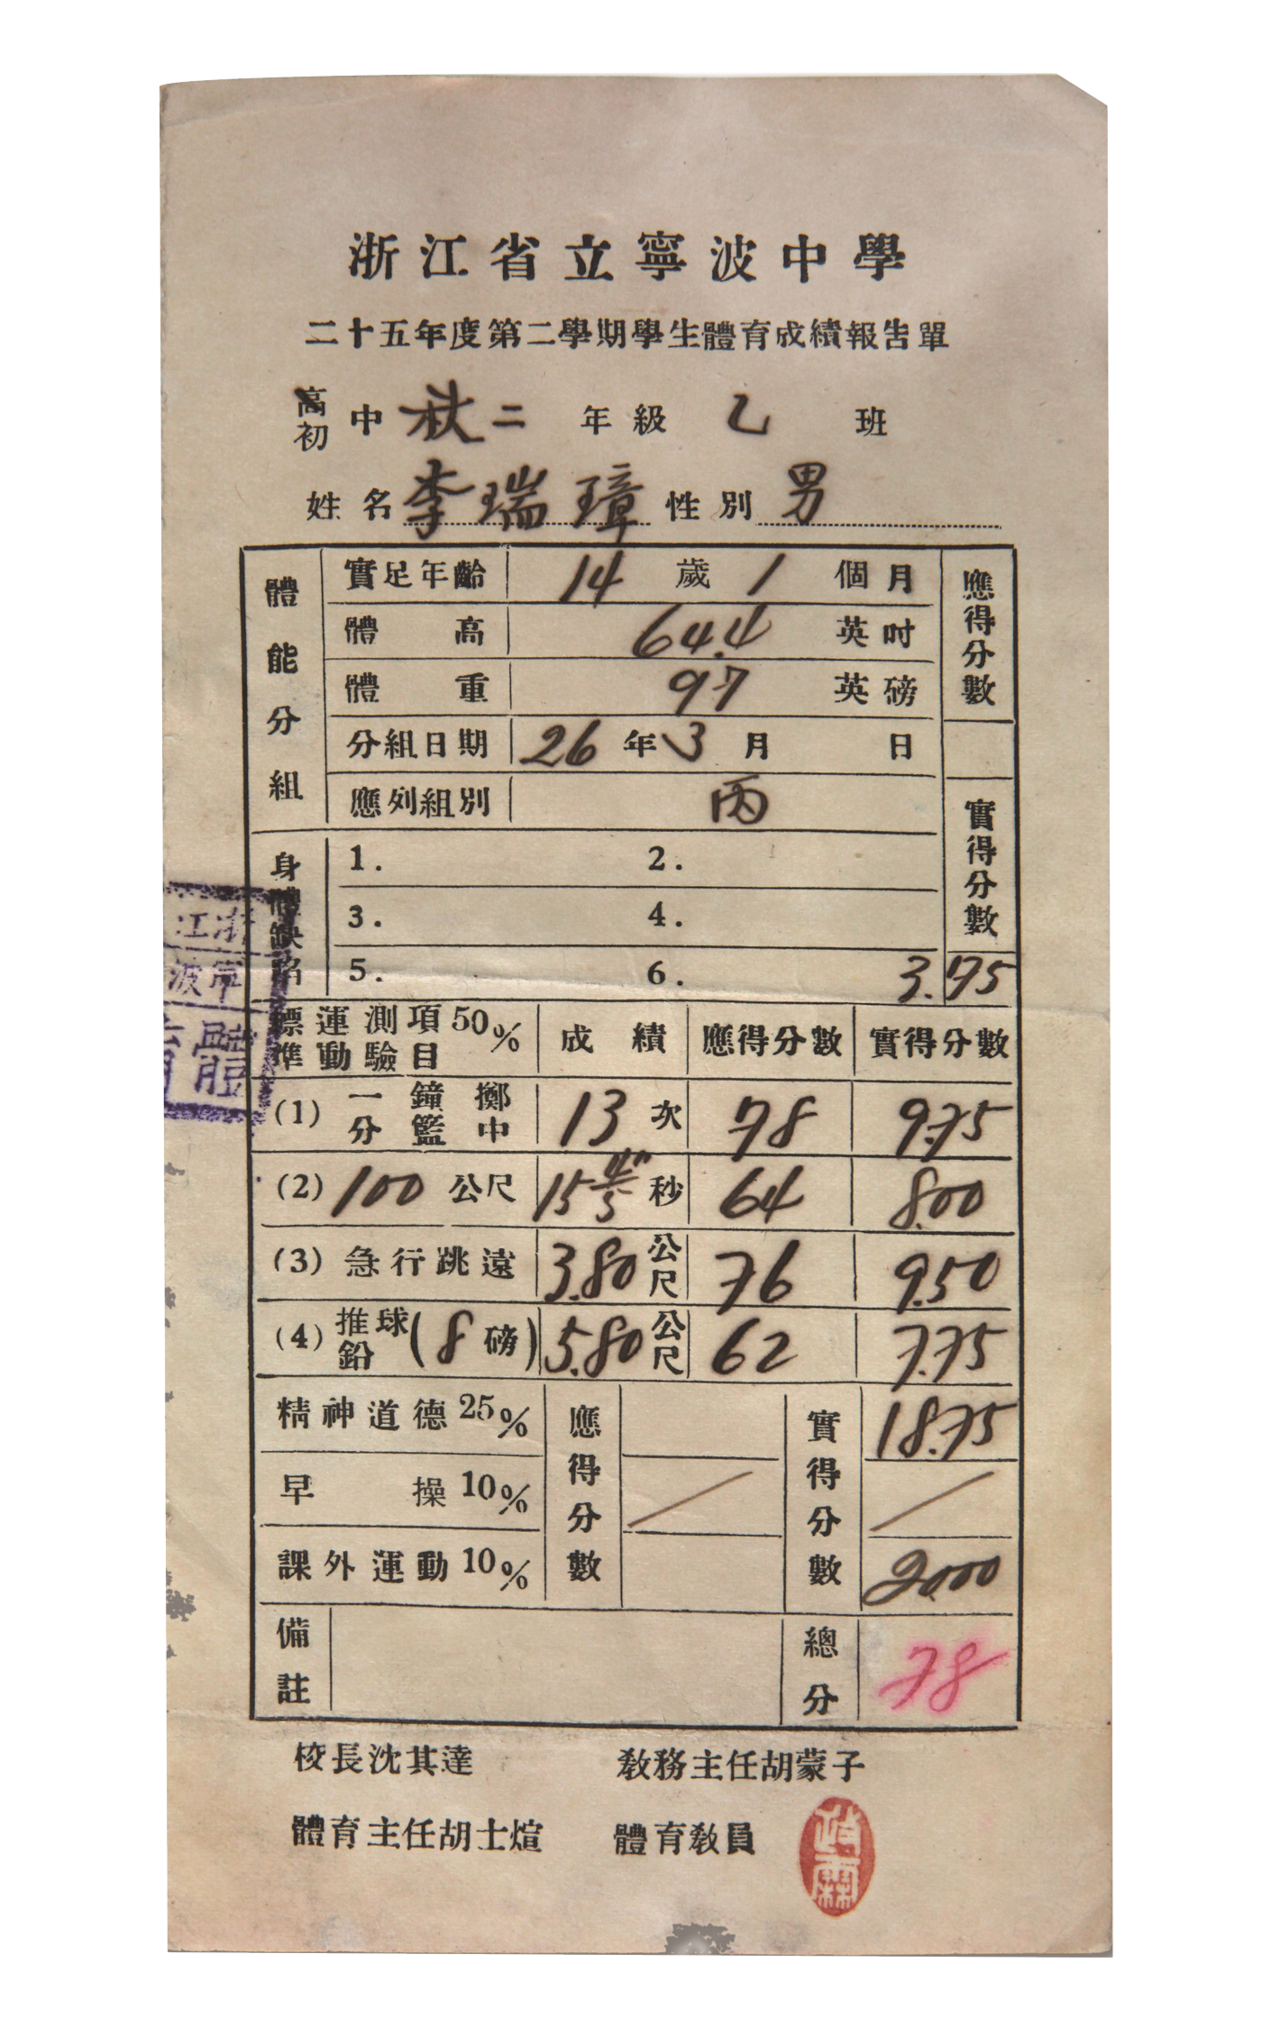 浙江省立寧波中學
二十五年度第二學期學生體育成績報告單
高初中 秋二 年級 乙 班
姓名 李瑞璋 性別 男
體能分組 實足年齡 14 歲 1 個月 應得分數
體高 64.4 英吋
體重 97 英磅
分組日期 26 年 3 月 日
應列組別 丙 實得分數
身體缺陷 1. 2.
3. 4.
5. 6. 3.75
標準運動測驗項目50% 成績 應得分數 實得分數
(1) 一分鐘擲籃中 13 次 78 9.75
(2) 100 公尺 15 4/5" 秒 64 8.00
(3) 急行跳遠 3.80 公尺 76 9.50
(4) 推鉛球(8磅) 5.80 公尺 62 7.75
精神道德25% 應得分數 實得分數 18.75
早操10% / /
課外運動10% 20.00
備註 總分 78
校長沈其達 教務主任胡蒙子
體育主任胡士煊 體育教員
浙江
寧波
體育